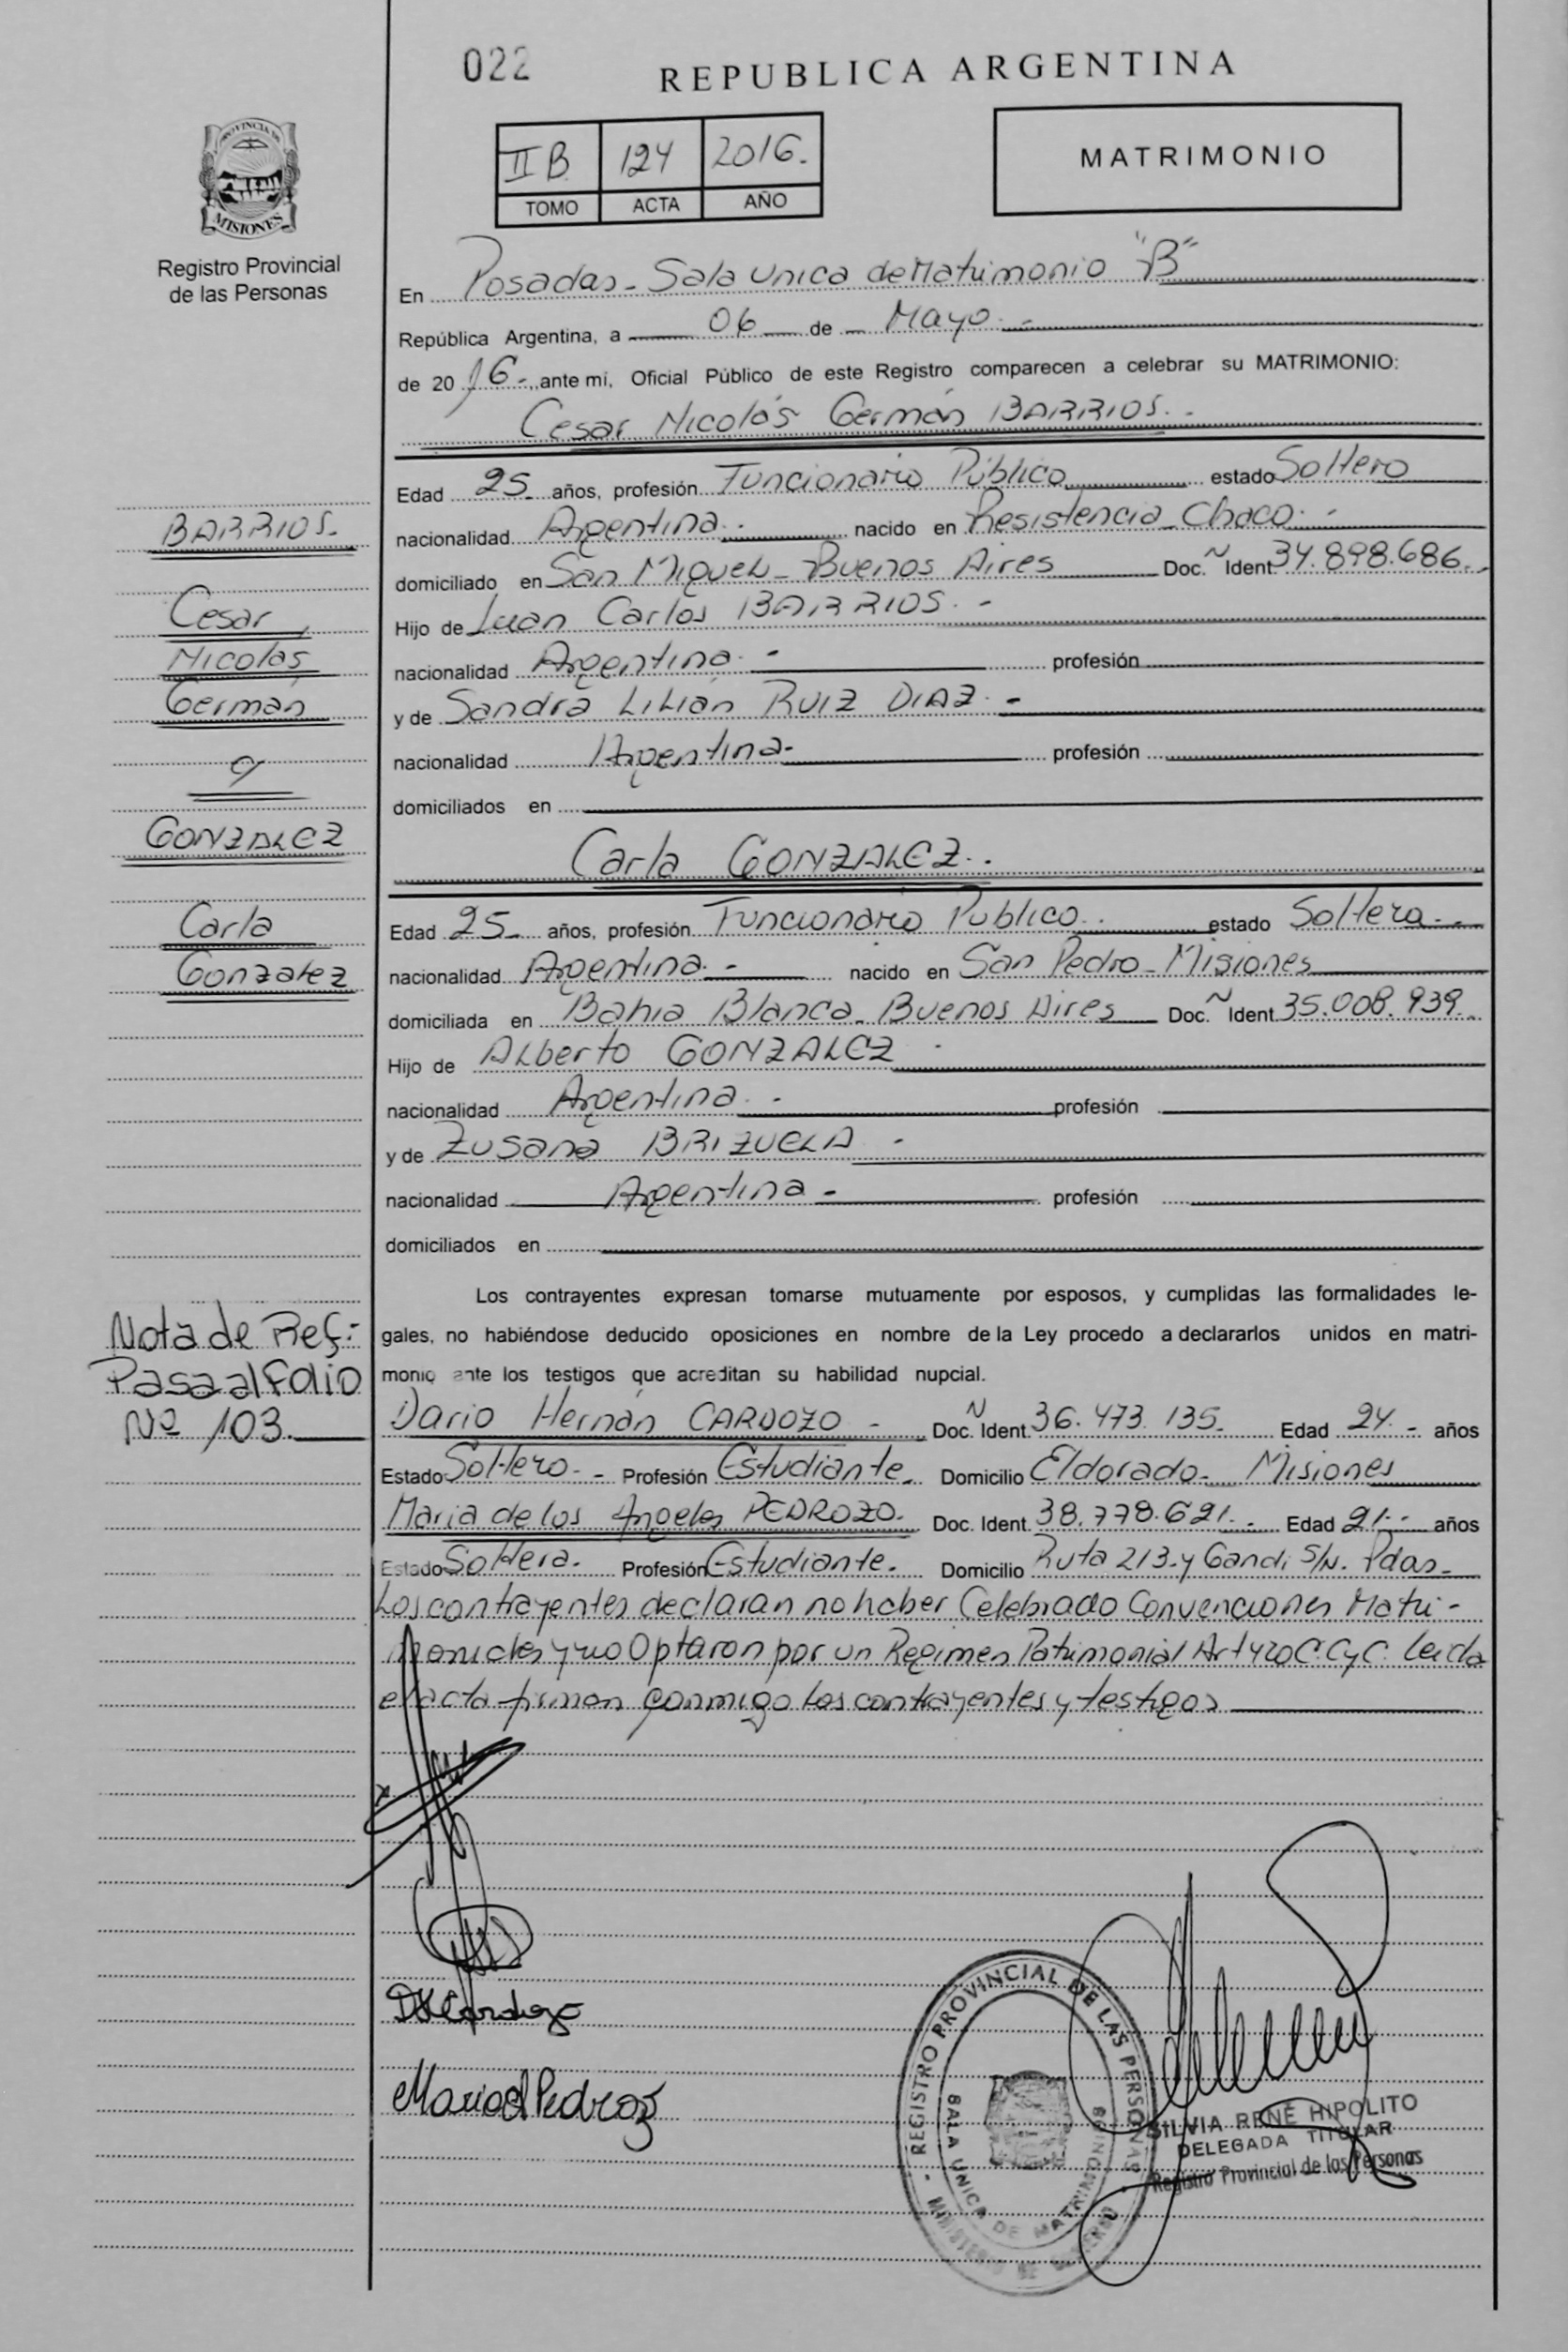 022
REPUBLICA ARGENTINA
II B. 124 2016.
TOMO ACTA AÑO
MATRIMONIO
PROVINCIA DE
MISIONES
Registro Provincial
de las Personas
En Posadas - Sala Unica de Matrimonio "B"
República Argentina, a 06 de Mayo. -
de 2016 -, ante mí, Oficial Público de este Registro comparecen a celebrar su MATRIMONIO:
Cesar Nicolás Germán BARRIOS. -
Edad 25 años, profesión Funcionario Público estado Soltero
nacionalidad Argentina. - nacido en Resistencia - Chaco. -
domiciliado en San Miguel - Buenos Aires Doc. N Ident 34.898.686. -
Hijo de Juan Carlos BARRIOS. -
nacionalidad Argentina. - profesión
y de Sandra Lilián RUIZ DIAZ. -
nacionalidad Argentina - profesión
domiciliados en
Carla GONZALEZ. .
Edad 25 años, profesión Funcionario Publico. . estado Soltera. -
nacionalidad Argentina. - nacido en San Pedro - Misiones
domiciliada en Bahia Blanca - Buenos Aires Doc. N Ident. 35.008.939. -
Hijo de Alberto GONZALEZ -
nacionalidad Argentina - profesión
y de Zusana BRIZUELA -
nacionalidad Argentina - profesión
domiciliados en
BARRIOS.-
Cesar
Nicolás
Germán
y
GONZALEZ
Carla
Gonzalez
Los contrayentes expresan tomarse mutuamente por esposos, y cumplidas las formalidades le-
gales, no habiéndose deducido oposiciones en nombre de la Ley procedo a declararlos unidos en matri-
monio ante los testigos que acreditan su habilidad nupcial.
Nota de Ref:-
Pasa al Folio
Nº 103.
Dario Hernán CARDOZO - Doc. N Ident. 36.473.135. Edad 24. - años
Estado Soltero. - Profesión Estudiante. Domicilio Eldorado - Misiones
Maria de los Angeles PEDROZO. Doc. Ident. 38.778.621. - Edad 21. - años
Estado Soltera. Profesión Estudiante. Domicilio Ruta 213 y Gandi S/N. Pdas.
Los contrayentes declaran no haber Celebrado Convenciones Matri-
moniales y no Optaron por un Regimen Patrimonial Art 420 C.C y C. Leida
el acta firman conmigo los contrayentes y testigos
DHCardozo
REGISTRO PROVINCIAL DE LAS PERSONAS
SALA UNICA DE MATRIMONIOS
MINISTERIO DE GOBIERNO
SILVIA RENÉ HIPOLITO
DELEGADA TITULAR
Registro Provincial de las Personas